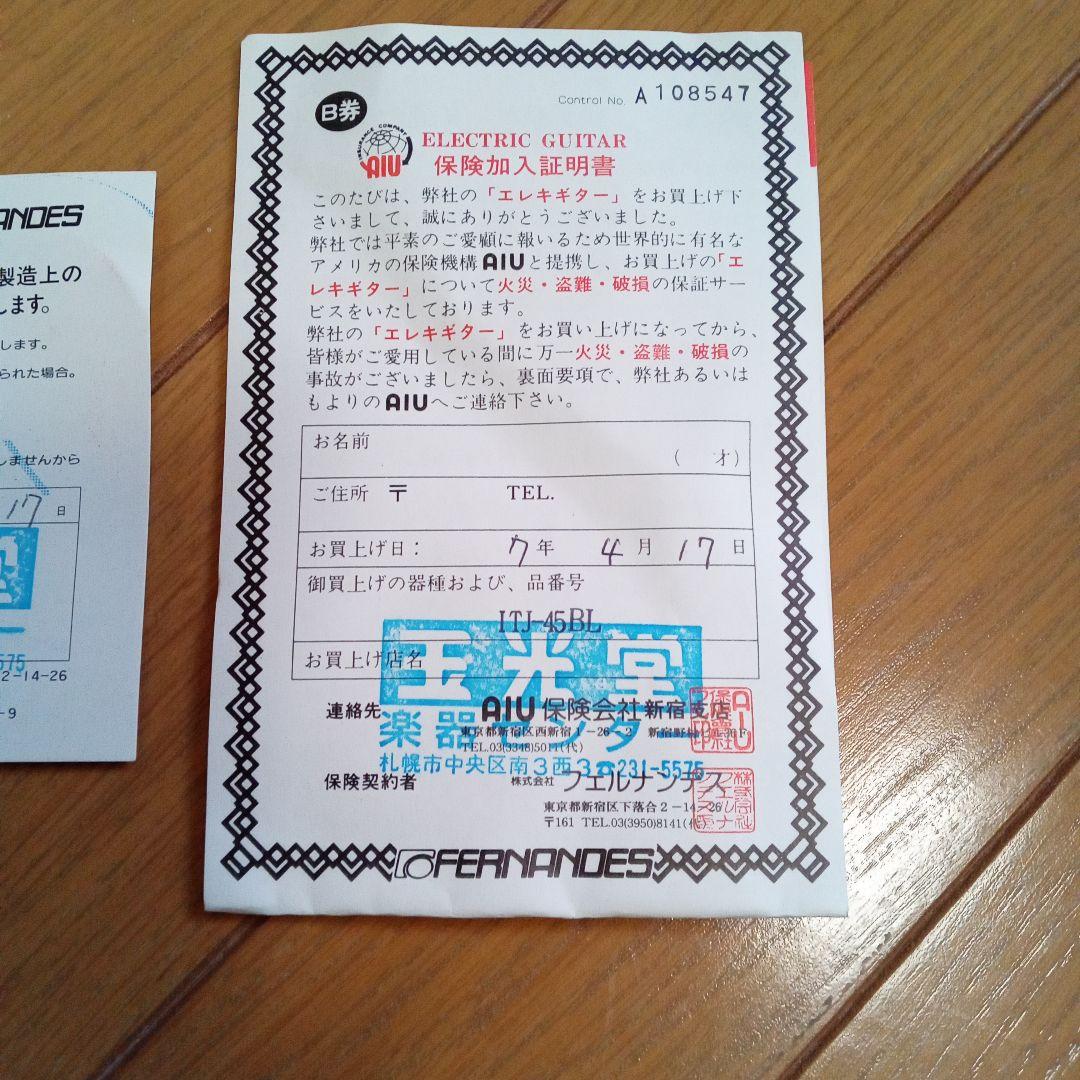 ANDES
製造上の
します。
します。
られた場合。
しませんから
17日
575
2-14-26
-9
B券
Control No. A 108547
INSURANCE COMPANY
AIU
ELECTRIC GUITAR
保険加入証明書
このたびは、弊社の「エレキギター」をお買上げ下
さいまして、誠にありがとうございました。
弊社では平素のご愛顧に報いるため世界的に有名な
アメリカの保険機構AIUと提携し、お買上げの「エ
レキギター」について火災・盗難・破損の保証サー
ビスをいたしております。
弊社の「エレキギター」をお買い上げになってから、
皆様がご愛用している間に万一火災・盗難・破損の
事故がございましたら、裏面要項で、弊社あるいは
もよりのAIUへご連絡下さい。
お名前
( 才)
ご住所 〒 TEL.
お買上げ日: 7年 4月 17日
御買上げの器種および、品番号
ITJ-45BL
お買上げ店名
玉光堂
楽器センター
札幌市中央区南3西3☎231-5575
連絡先 AIU保険会社新宿支店
東京都新宿区西新宿1-26-2 新宿野村ビル36F
TEL.03(3348)5011(代)
保険契約者 株式会社フェルナンデス
東京都新宿区下落合2-14-26
〒161 TEL.03(3950)8141(代)
FERNANDES